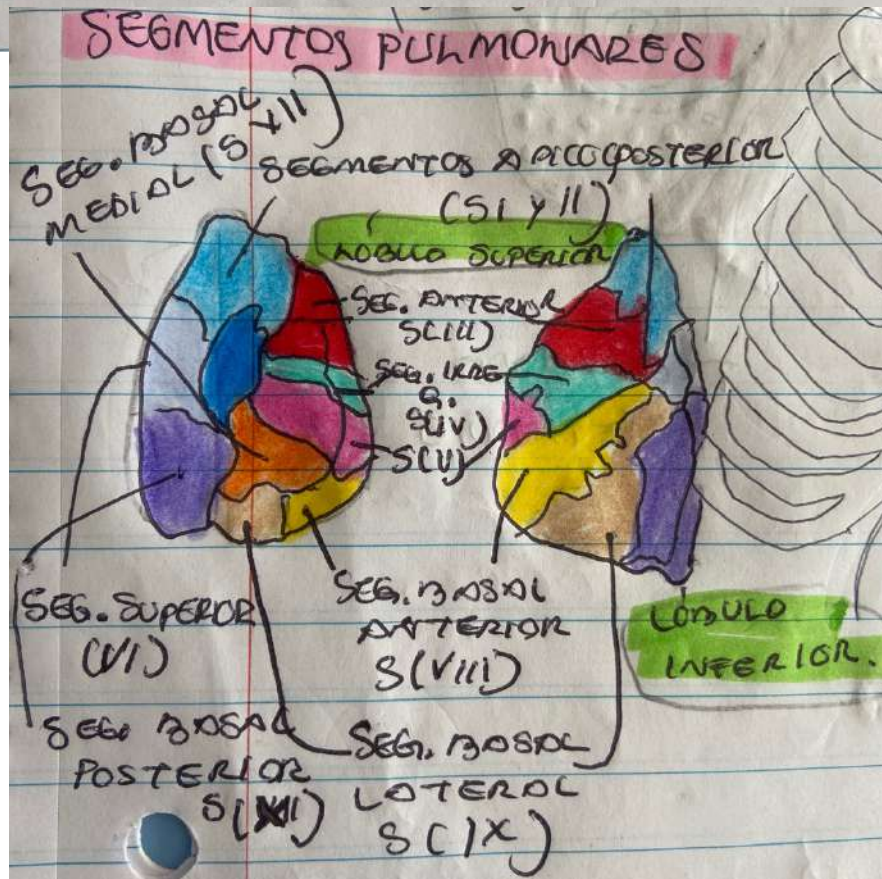 SEGMENTOS PULMONARES
SEG. BASAL
MEDIAL (S VII)
SEGMENTOS APICOPOSTERIOR
(SI y II)
LOBULO SUPERIOR
SEG. ANTERIOR
S(III)
SEG.
S(IV)
S(V)
SEG. SUPERIOR
(VI)
SEG. BASAL
ANTERIOR
S(VIII)
LOBULO
INFERIOR.
SEG. BASAL
POSTERIOR
SEG. BASAL
LATERAL
S(IX)